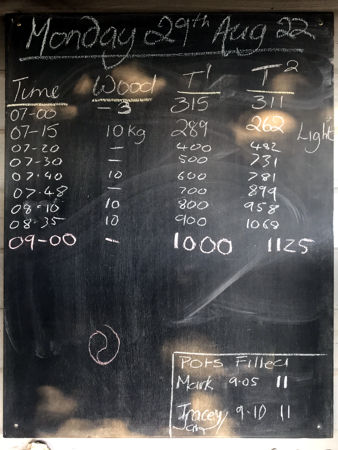 Monday 29th Aug 22
Time Wood T1 T2
07-00 - 3 315 311
07-15 10 kg 289 262 Light
07-20 - 400 482
07-30 - 500 731
07-40 10 600 781
07-48 - 700 899
08-10 10 800 958
08-35 10 900 1062
09-00 - 1000 1125
Pots Filled
Mark 9.05 11
Tracey 9.10 11